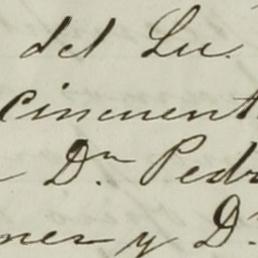 del Lu
cincuent
Dn Pedr
nes y D